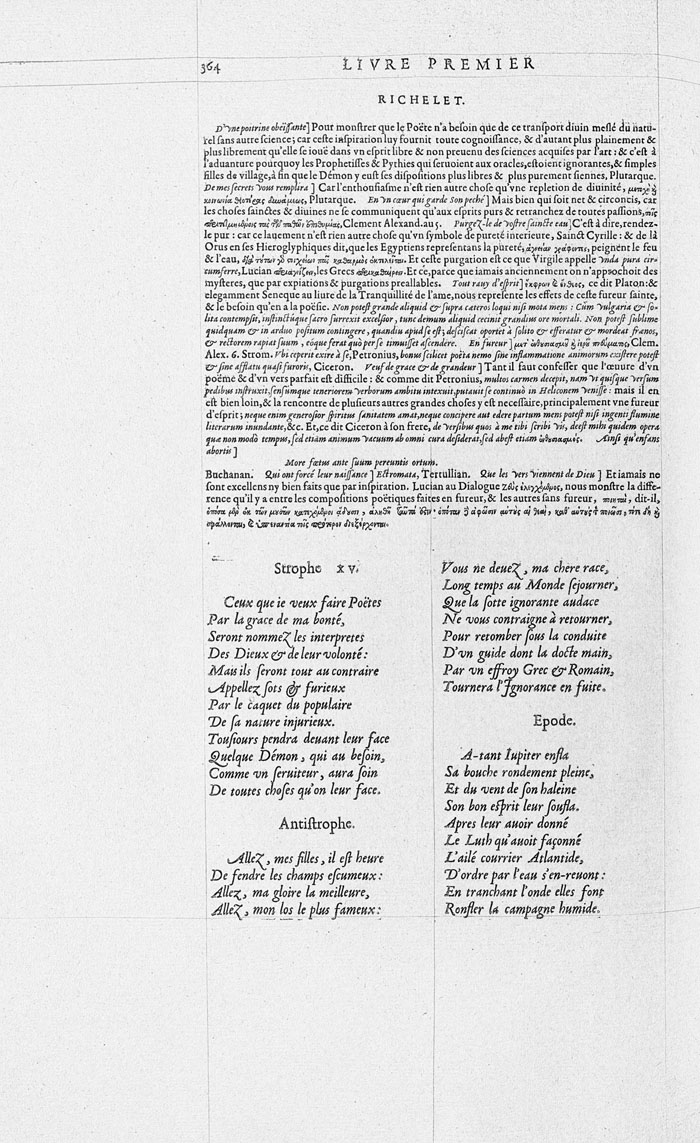 364
LIVRE PREMIER
RICHELET.
D'vne poitrine obeïssante] Pour monstrer que le Poëte n'a besoin que de ce transport diuin meslé du natu-
rel sans autre science; car ceste inspiration luy fournit toute cognoissance, & d'autant plus plainement &
plus librement qu'elle se iouë dans vn esprit libre & non preuenu des sciences acquises par l'art: & c'est à
l'aduanture pourquoy les Prophetisses & Pythies qui seruoient aux oracles, estoient ignorantes, & simples
filles de village, à fin que le Démon y eust ses dispositions plus libres & plus purement siennes, Plutarque.
De mes secrets vous remplira] Car l'enthousiasme n'est rien autre chose qu'vne repletion de diuinité,
Plutarque. En vn cœur qui garde son peché] Mais bien qui soit net & circoncis, car
les choses sainctes & diuines ne se communiquent qu'aux esprits purs & retranchez de toutes passions,
Clement Alexand. au 5. Purgez-le de vostre saincte eau] C'est à dire, rendez-
le pur: car ce lauement n'est rien autre chose qu'vn symbole de pureté interieure, Sainct Cyrille: & de là
Orus en ses Hieroglyphiques dit, que les Egyptiens representans la pureté, peignent le feu
& l'eau, Et ceste purgation est ce que Virgile appelle vnda pura cir-
cumferre, Lucian les Grecs Et ce, parce que iamais anciennement on n'approchoit des
mysteres, que par expiations & purgations preallables. Tout rauy d'esprit] ce dit Platon: &
elegamment Seneque au liure de la Tranquillité de l'ame, nous represente les effets de ceste fureur sainte,
& le besoin qu'en a la poësie. Non potest grande aliquid & supra cæteros loqui nisi mota mens: Cùm vulgaria & so-
lita contempsit, instinctúque sacro surrexit excelsior, tunc demum aliquid cecinit grandius ore mortali. Non potest sublime
quidquam & in arduo positum contingere, quandiu apud se est; desciscat oportet à solito & efferatur & mordeat frænos,
& rectorem rapiat suum, eóque ferat quò per se timuisset ascendere. En fureur] Clem.
Alex. 6. Strom. Vbi ceperit exire à se, Petronius, bonus scilicet poëta nemo sine inflammatione animorum existere potest
& sine afflatu quasi furoris, Ciceron. Veuf de grace & de grandeur] Tant il faut confesser que l'œuure d'vn
poëme & d'vn vers parfait est difficile: & comme dit Petronius, multos carmen decepit, nam vt quisque versum
pedibus instruxit, sensumque teneriorem verborum ambitu intexuit, putauit se continuò in Heliconem venisse: mais il en
est bien loin, & la rencontre de plusieurs autres grandes choses y est necessaire, principalement vne fureur
d'esprit; neque enim generosior spiritus sanitatem amat, neque concipere aut edere partum mens potest nisi ingenti flumine
literarum inundante, &c. Et, ce dit Ciceron à son frere, de versibus quos à me tibi scribi vis, deest mihi quidem opera
quæ non modò tempus, sed etiam animum vacuum ab omni cura desiderat, sed abest etiam Ainsi qu'enfans
abortis]
More fœtus ante suum pereuntis ortum.
Buchanan. Qui ont forcé leur naissance] Ectromata, Tertullian. Que les vers viennent de Dieu] Et iamais ne
sont excellens ny bien faits que par inspiration. Lucian au Dialogue nous monstre la diffe-
rence qu'il y a entre les compositions poëtiques faites en fureur, & les autres sans fureur, dit-il,
Strophe xv.
Ceux que ie veux faire Poëtes
Par la grace de ma bonté,
Seront nommez les interpretes
Des Dieux & de leur volonté:
Mais ils seront tout au contraire
Appellez sots & furieux
Par le caquet du populaire
De sa nature injurieux.
Tousiours pendra deuant leur face
Quelque Démon, qui au besoin,
Comme vn seruiteur, aura soin
De toutes choses qu'on leur face.
Antistrophe.
Allez, mes filles, il est heure
De fendre les champs escumeux:
Allez, ma gloire la meilleure,
Allez, mon los le plus fameux:
Vous ne deuez, ma chere race,
Long temps au Monde sejourner,
Que la sotte ignorante audace
Ne vous contraigne à retourner,
Pour retomber sous la conduite
D'vn guide dont la docte main,
Par vn effroy Grec & Romain,
Tournera l'Ignorance en fuite.
Epode.
A-tant Iupiter enfla
Sa bouche rondement pleine,
Et du vent de son haleine
Son bon esprit leur soufla.
Apres leur auoir donné
Le Luth qu'auoit façonné
L'ailé courrier Atlantide,
D'ordre par l'eau s'en-reuont:
En tranchant l'onde elles font
Ronfler la campagne humide.